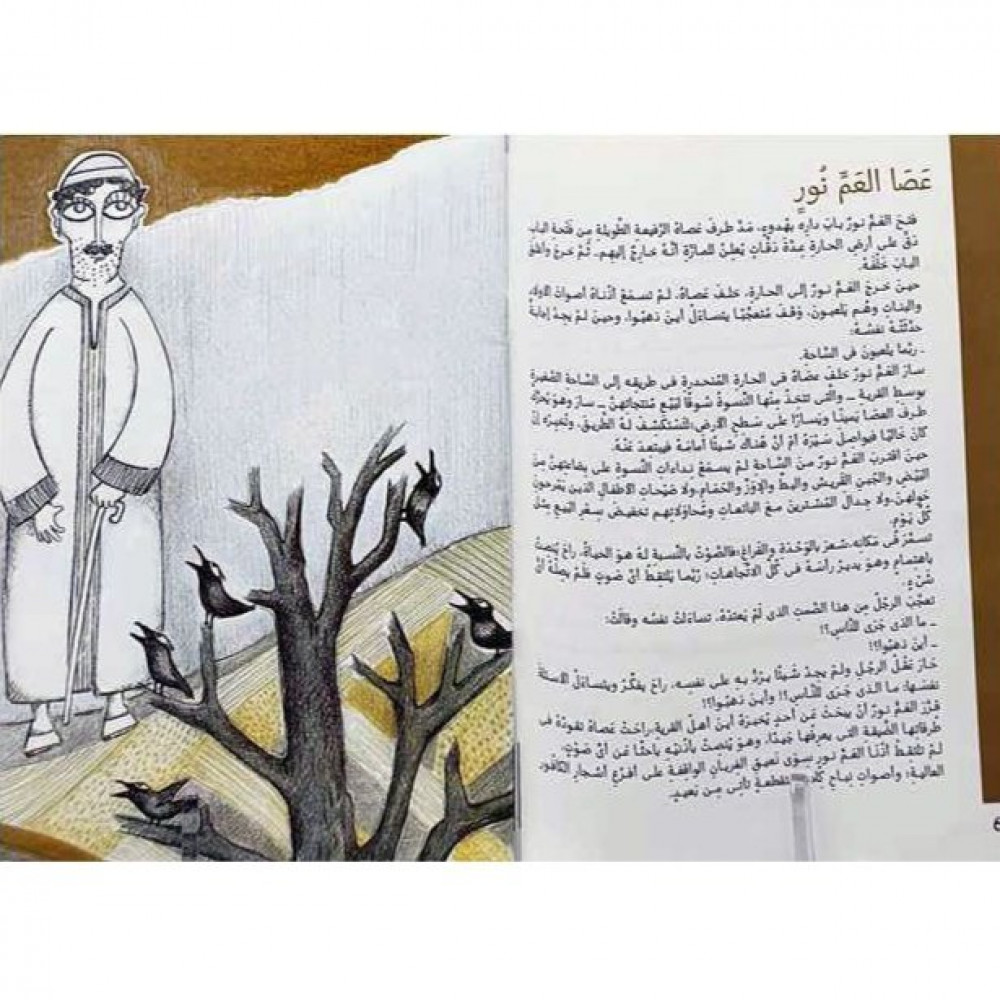 عَصَا العَمِّ نُورٍ
فتحَ العَمُّ نورٌ بابَ دارِه بهُدوءٍ، مَدَّ طرفَ عَصاهُ الرَّفيعةِ الطَّويلةِ مِن فَتحةِ البابِ
دَقَّ على أرضِ الحارةِ عِدَّةَ دَقَّاتٍ يُعلِنُ للمارَّةِ أنَّهُ خارجٌ إليهِم. ثُمَّ خرجَ وأغلقَ
البابَ خَلْفَهُ.
حينَ خرجَ العَمُّ نورٌ إلى الحارةِ، خلفَ عَصاهُ، لَمْ تسمَعْ أذناهُ أصواتَ الأولادِ
والبناتِ وهُم يلعبونَ، وَقفَ مُتعجِّبًا يتساءَلُ أينَ ذهبُوا، وحينَ لمْ يجِدْ إجابةً
حدَّثتهُ نفسُهُ:
ـ ربَّما يلعبونَ فى السَّاحةِ.
سارَ العَمُّ نورٌ خلفَ عصاهُ فى الحارةِ المُنحدرةِ فى طريقِه إلى السَّاحةِ الصَّغيرةِ
بوسطِ القريةِ ـ والَّتى تتخذُ منْها النِّسوةُ سُوقًا لبَيْعِ مُنتجاتِهنَّ ـ سارَ وهوَ يُحرِّكُ
طرفَ العصا يمينًا ويسارًا على سَطحِ الأرضِ؛ لتستكشفَ لهُ الطَّريقَ، وتخبرَه إنْ
كانَ خاليًا فيواصلَ سَيْرَهُ أمْ أنَّ هُناكَ شيئًا أمامَهُ فيبتعدَ عَنْهُ.
حينَ اقتربَ العَمُّ نورٌ مِنَ السَّاحةِ لمْ يسمَعْ نداءاتِ النِّسوةِ على بِضاعتِهنَّ مِنَ
البَيْضِ والجُبنِ القَريشِ والبطِّ والإوَزِّ والحَمامِ، ولا صَيْحاتِ الأطفالِ الذينَ يمْرحُونَ
حَولَهنَّ، ولا جدالَ المُشترينَ معَ البائعاتِ ومُحاوَلاتِهم تخفيضَ سِعْرِ البَيْعِ مِثلَ
كُلِّ يَوْمٍ.
تسمَّرَ فى مَكانِه، شعرَ بالوَحْدةِ والفَراغِ؛ فالصَّوْتُ بالنِّسبةِ لهُ هوَ الحياةُ، راحَ يُنصِتُ
باهتمامٍ وهوَ يديرُ رأسَهُ فى كُلِّ الاتِّجاهاتِ؛ ربَّما يلتقطُ أىَّ صَوتٍ فلمْ يصِلْهُ أىُّ
شَىْءٍ.
تعجَّبَ الرَّجُلُ مِن هذا الصَّمتِ الذى لمْ يَعتدْهُ، تساءلَتْ نفسُه وقالَتْ:
ـ ما الذى جَرَى للنَّاسِ؟!
ـ أينَ ذهبُوا؟!
حارَ عَقلُ الرجُلِ ولمْ يجدْ شَيئًا يردُّ به على نفسِه، راحَ يفكِّرُ ويتساءَلُ الأسئلةَ
نفسَها: ما الذى جَرَى للنَّاسِ؟! وأينَ ذهبُوا؟!
قرَّرَ العَمُّ نورٌ أنْ يبحثَ عَن أحدٍ يُخبِرُهُ أينَ أهلُ القريةِ، راحَتْ عَصاهُ تقودُهُ فى
طرقاتِها الضَّيقةِ التى يعرفُها جَيدًا، وهوَ يُنصِتُ بأذنَيْهِ باحثًا عَن أىِّ صَوْتٍ،
لمْ تلتقطْ أذْنَا العَمِّ نورٍ سِوَى نَعيقِ الغِربانِ الواقفةِ على أفرُعِ أشجارِ الكافُورِ
العاليةِ؛ وأصواتِ نباحِ مُتقطِّعةٍ تأتى مِن بَعيدٍ.